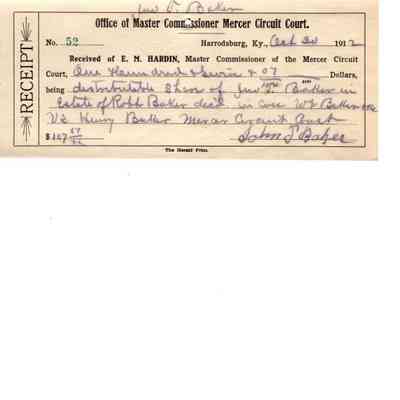 Jno T. Baker
Office of Master Commissioner Mercer Circuit Court.
RECEIPT
No. 52 Harrodsburg, Ky., Oct 30 1912
Received of E. M. HARDIN, Master Commissioner of the Mercer Circuit
Court, One Hundred & Seven & 07 Dollars,
being distributable Share of Jno T. Baker in
Estate of Robt Baker decd in case W Baker
Vs Henry Baker Mercer Circuit Court
$107 John T Baker
The Herald Print.